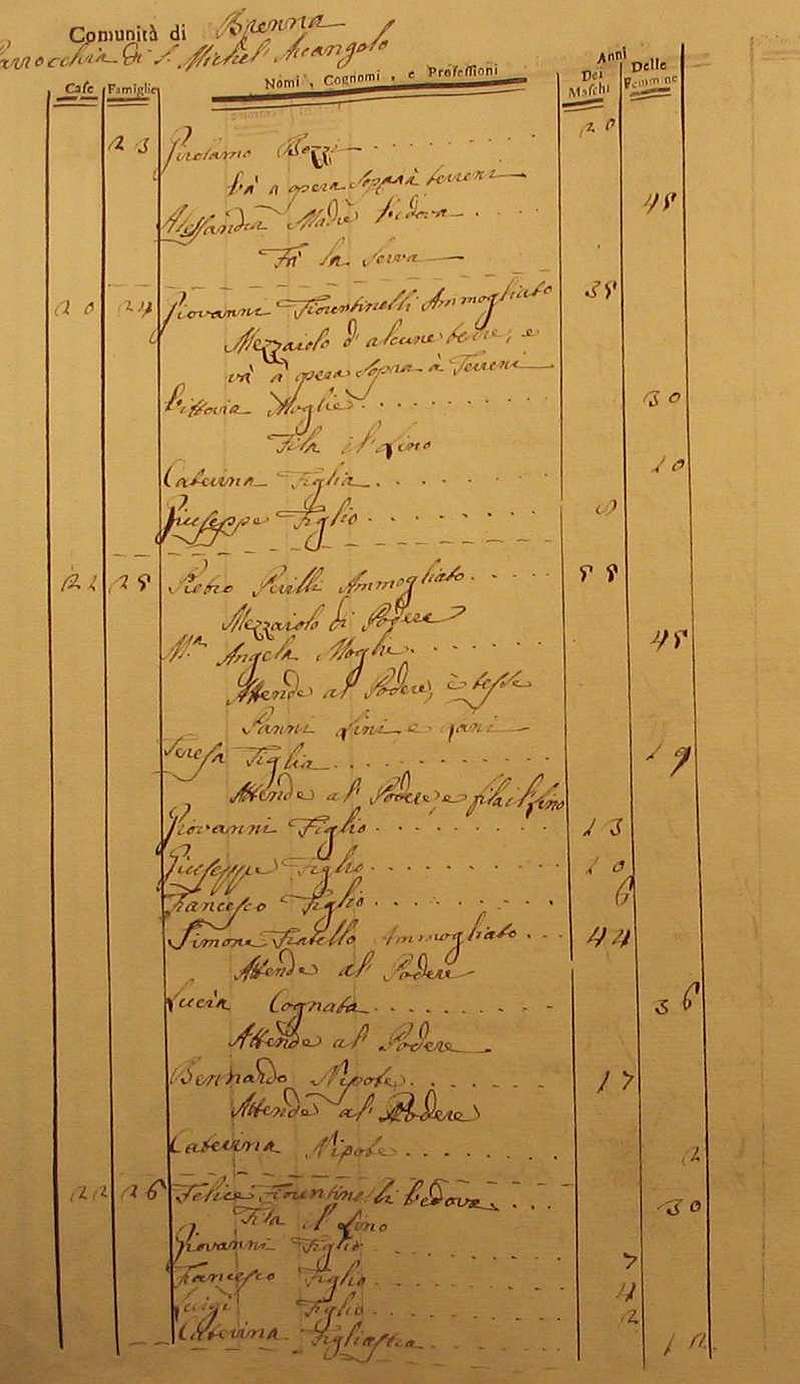 Comunità di Brenna
Parrocchia di S. Michel Arcangelo
Case Famiglie Nomi, Cognomi, e Professioni Anni Dei Maschi Delle Femmine
23 Girolamo 20
Và a opera sopra à terreni
Alessandra Madre Vedova 45
Fà la Serva
20 24 Giovanni Fiorentinelli Ammogliato 35
Mezzaiolo d'alcune terre, e
và a opera sopra à Terreni
Vittoria Moglie 30
Fila il Lino
Caterina Figlia 10
Giuseppe Figlio
21 25 Pietro Ammogliato 55
Mezzaiolo di Podere
M.a Angela Moglie 45
Attende al Podere, e tesse
Panni Lini e Lani
Teresa Figlia 19
Attende al Podere e fila il Lino
Giovanni Figlio 13
Giuseppe Figlio 10
Francesco Figlio 6
Simone Fratello Ammogliato 44
Attende al Podere
Lucia Cognata 36
Attende al Podere
Bernardo Nipote 17
Attende al Podere
Caterina Nipote 2
22 26 Felice Fiorentinelli Vedova 30
Fila il Lino
Giovanni Figlio 7
Francesco Figlio 4
Luigi Figlio 2
Caterina Figliastra 12